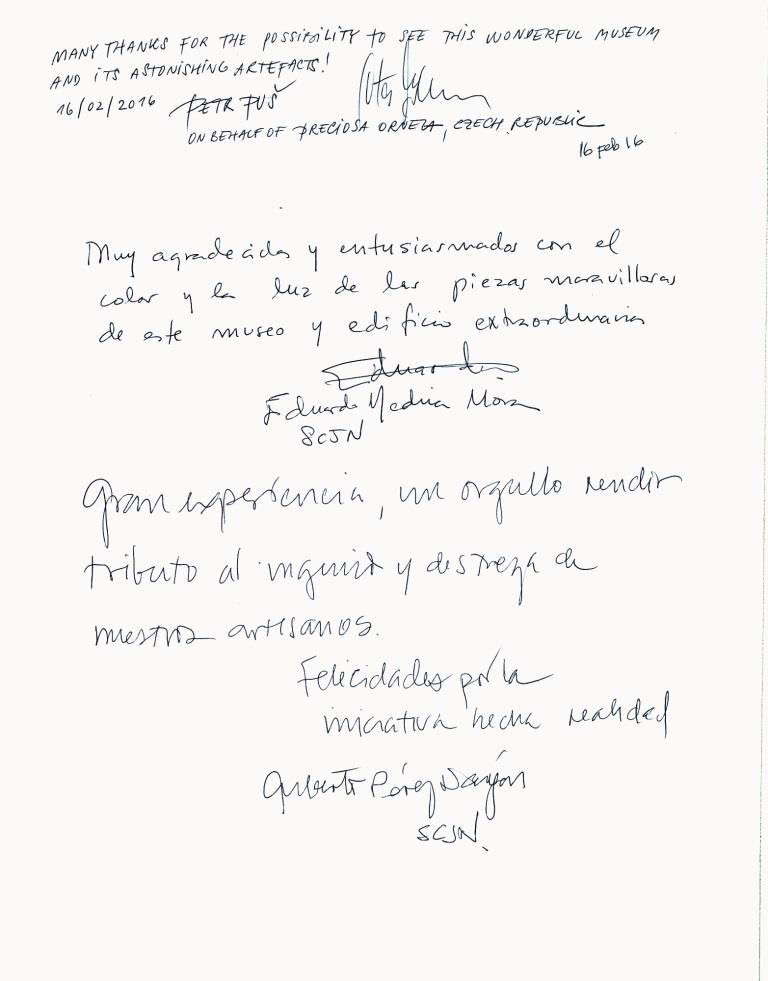 MANY THANKS FOR THE POSSIBILITY TO SEE THIS WONDERFUL MUSEUM
AND ITS ASTONISHING ARTEFACTS!
16/02/2016 PETR PUŠ
ON BEHALF OF PRECIOSA ORNELA, CZECH REPUBLIC
16 feb 16
Muy agradecidos y entusiasmados con el
color y la luz de las piezas maravillosas
de este museo y edificio extraordinarios
Eduardo
Eduardo Medina Mora
SCJN
Gran experiencia, un orgullo rendir
tributo al ingenio y destreza de
nuestros artesanos.
Felicidades por la
iniciativa hecha realidad
Alberto Pérez Dayán
SCJN.